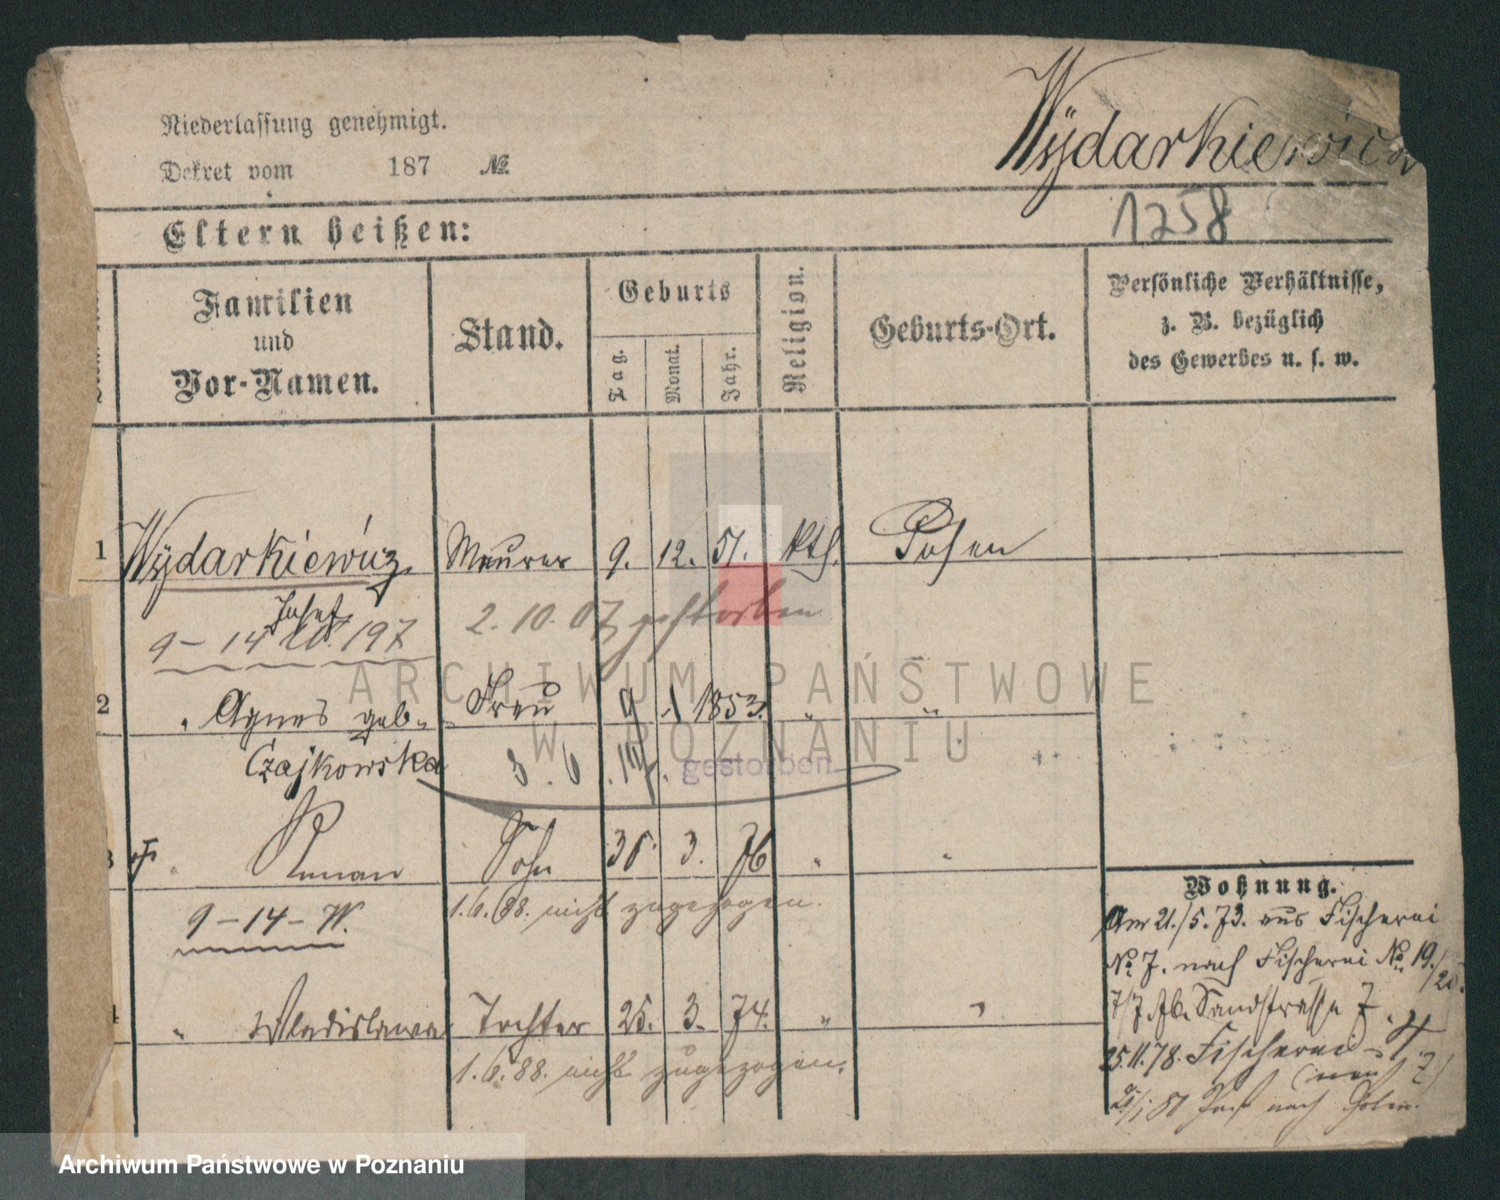 Niederlassung genehmigt.
Dekret vom 187 №
Wÿdarkiewicz
1258
Eltern heißen:
Familien und Vor-Namen.
Stand.
Geburts
Tag.
Monat.
Jahr.
Religion.
Geburts-Ort.
Persönliche Verhältnisse, z. B. bezüglich des Gewerbes u. s. w.
1 Wÿdarkiewicz Maurer 9. 12. 51. kth. Posen
Josef
2. 10. 07 gestorben
9 – 14 197
2 " Agnes geb. Frau 9 1 1853. " "
Czajkowska 8. 6. gestorben
" Roman Sohn 3. 76 " "
9 – 14 – W. 1.6.88. nicht zugezogen.
" Wladislawa Tochter 25. 3. 74. " "
1.6.88. nicht zugezogen.
Wohnung.
Am 21./5. 73. aus Fischerei
No 7. nach Fischerei No 19./20.
7/7. 76. Sandstrasse 7.
25.11.78. Fischerei
nach
ARCHIWUM PAŃSTWOWE
W POZNANIU
Archiwum Państwowe w Poznaniu